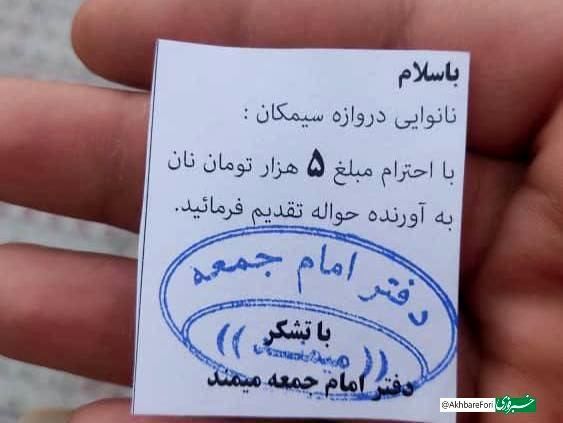 باسلام
نانوایی دروازه سیمکان :
با احترام مبلغ ۵ هزار تومان نان
به آورنده حواله تقدیم فرمائید.
دفتر امام جمعه
با تشکر
((میمند))
دفتر امام جمعه میمند
@AkhbareFori خبرفوری